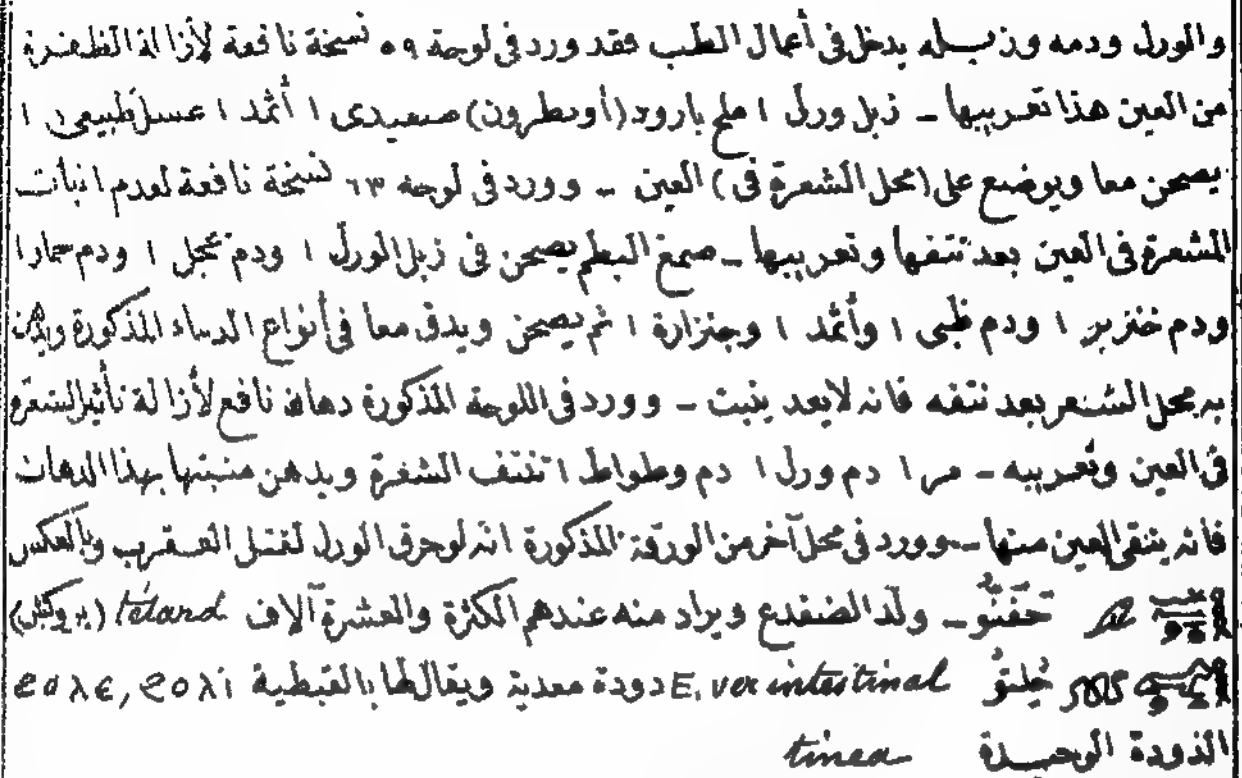 والورل ودمه وزبله يدخل فى أعمال الطب فقد ورد فى لوحة ٥٩ نسخة نافعة لأزالة الظفرة
من العين هذا تعريبها ـ زبل ورل ١ ملح بارود (أونطرون) صعيدى ١ أثمد ١ عسل طبيعى ١
يصحن معا ويوضع على (محل الشعرة فى) العين ـ وورد فى لوحة ٦٣ نسخة نافعة لعدم انبات
الشعرة فى العين بعد نتفها وتعريبها ـ صمغ البطم يصحن فى زبل الورل ١ ودم عجل ١ ودم حمار ١
ودم خنزير ١ ودم ظبى ١ وأثمد ١ وجنزارة ١ ثم يصحن ويدق معا فى أنواع الدماء المذكورة ويدهن
به محل الشعر بعد نتفه فانه لايعد ينبت ـ وورد فى اللوحة المذكورة دهان نافع لأزالة تأثير الشعرة
فى العين وتعريبه ـ مر ١ دم ورل ١ دم وطواط ١ تنتف الشعرة ويدهن منبتها بهذا الدهان
فانه ينقى العين منها ـ وورد فى محل آخر من الورقة المذكورة انه لوحرق الورل لقتل العقرب وبالعكس
حَفَنُّو ـ ولد الضفدع ويراد منه عندهم الكثرة والعشرة آلاف têtard (بروكش)
خلتو E. ver intestinal دودة معدية ويقال لها بالقبطية ϩⲟⲗⲉ, ϩⲟⲗⲓ
الدودة الوحيدة tinea